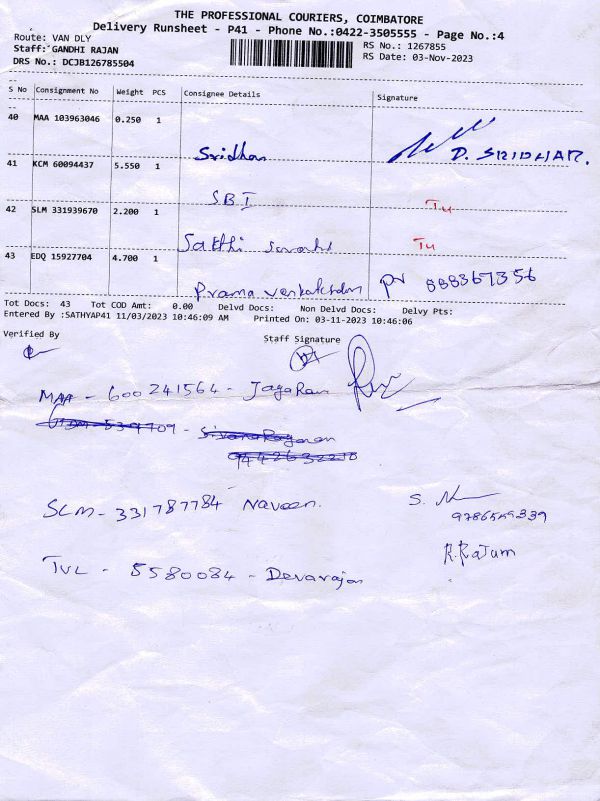 THE PROFESSIONAL COURIERS, COIMBATORE
Delivery Runsheet - P41 - Phone No.:0422-3505555 - Page No.:4
Route: VAN DLY
RS No.: 1267855
Staff: GANDHI RAJAN
RS Date: 03-Nov-2023
DRS No.: DCJB126785504
S No Consignment No Weight PCS Consignee Details Signature
40 MAA 103963046 0.250 1
Sridhar D. SRIDHAR.
41 KCM 60094437 5.550 1
SBI
42 SLM 331939670 2.200 1
Sakthi
43 EDQ 15927704 4.700 1
Prama 888367356
Tot Docs: 43 Tot COD Amt: 0.00 Delvd Docs: Non Delvd Docs: Delvy Pts:
Entered By :SATHYAP41 11/03/2023 10:46:09 AM Printed On: 03-11-2023 10:46:06
Verified By Staff Signature
MAA - 600241564 - JagaRan
SLM - 331787784 Naveen.
TVL - 5580084 - Devarajan
R.Rajum